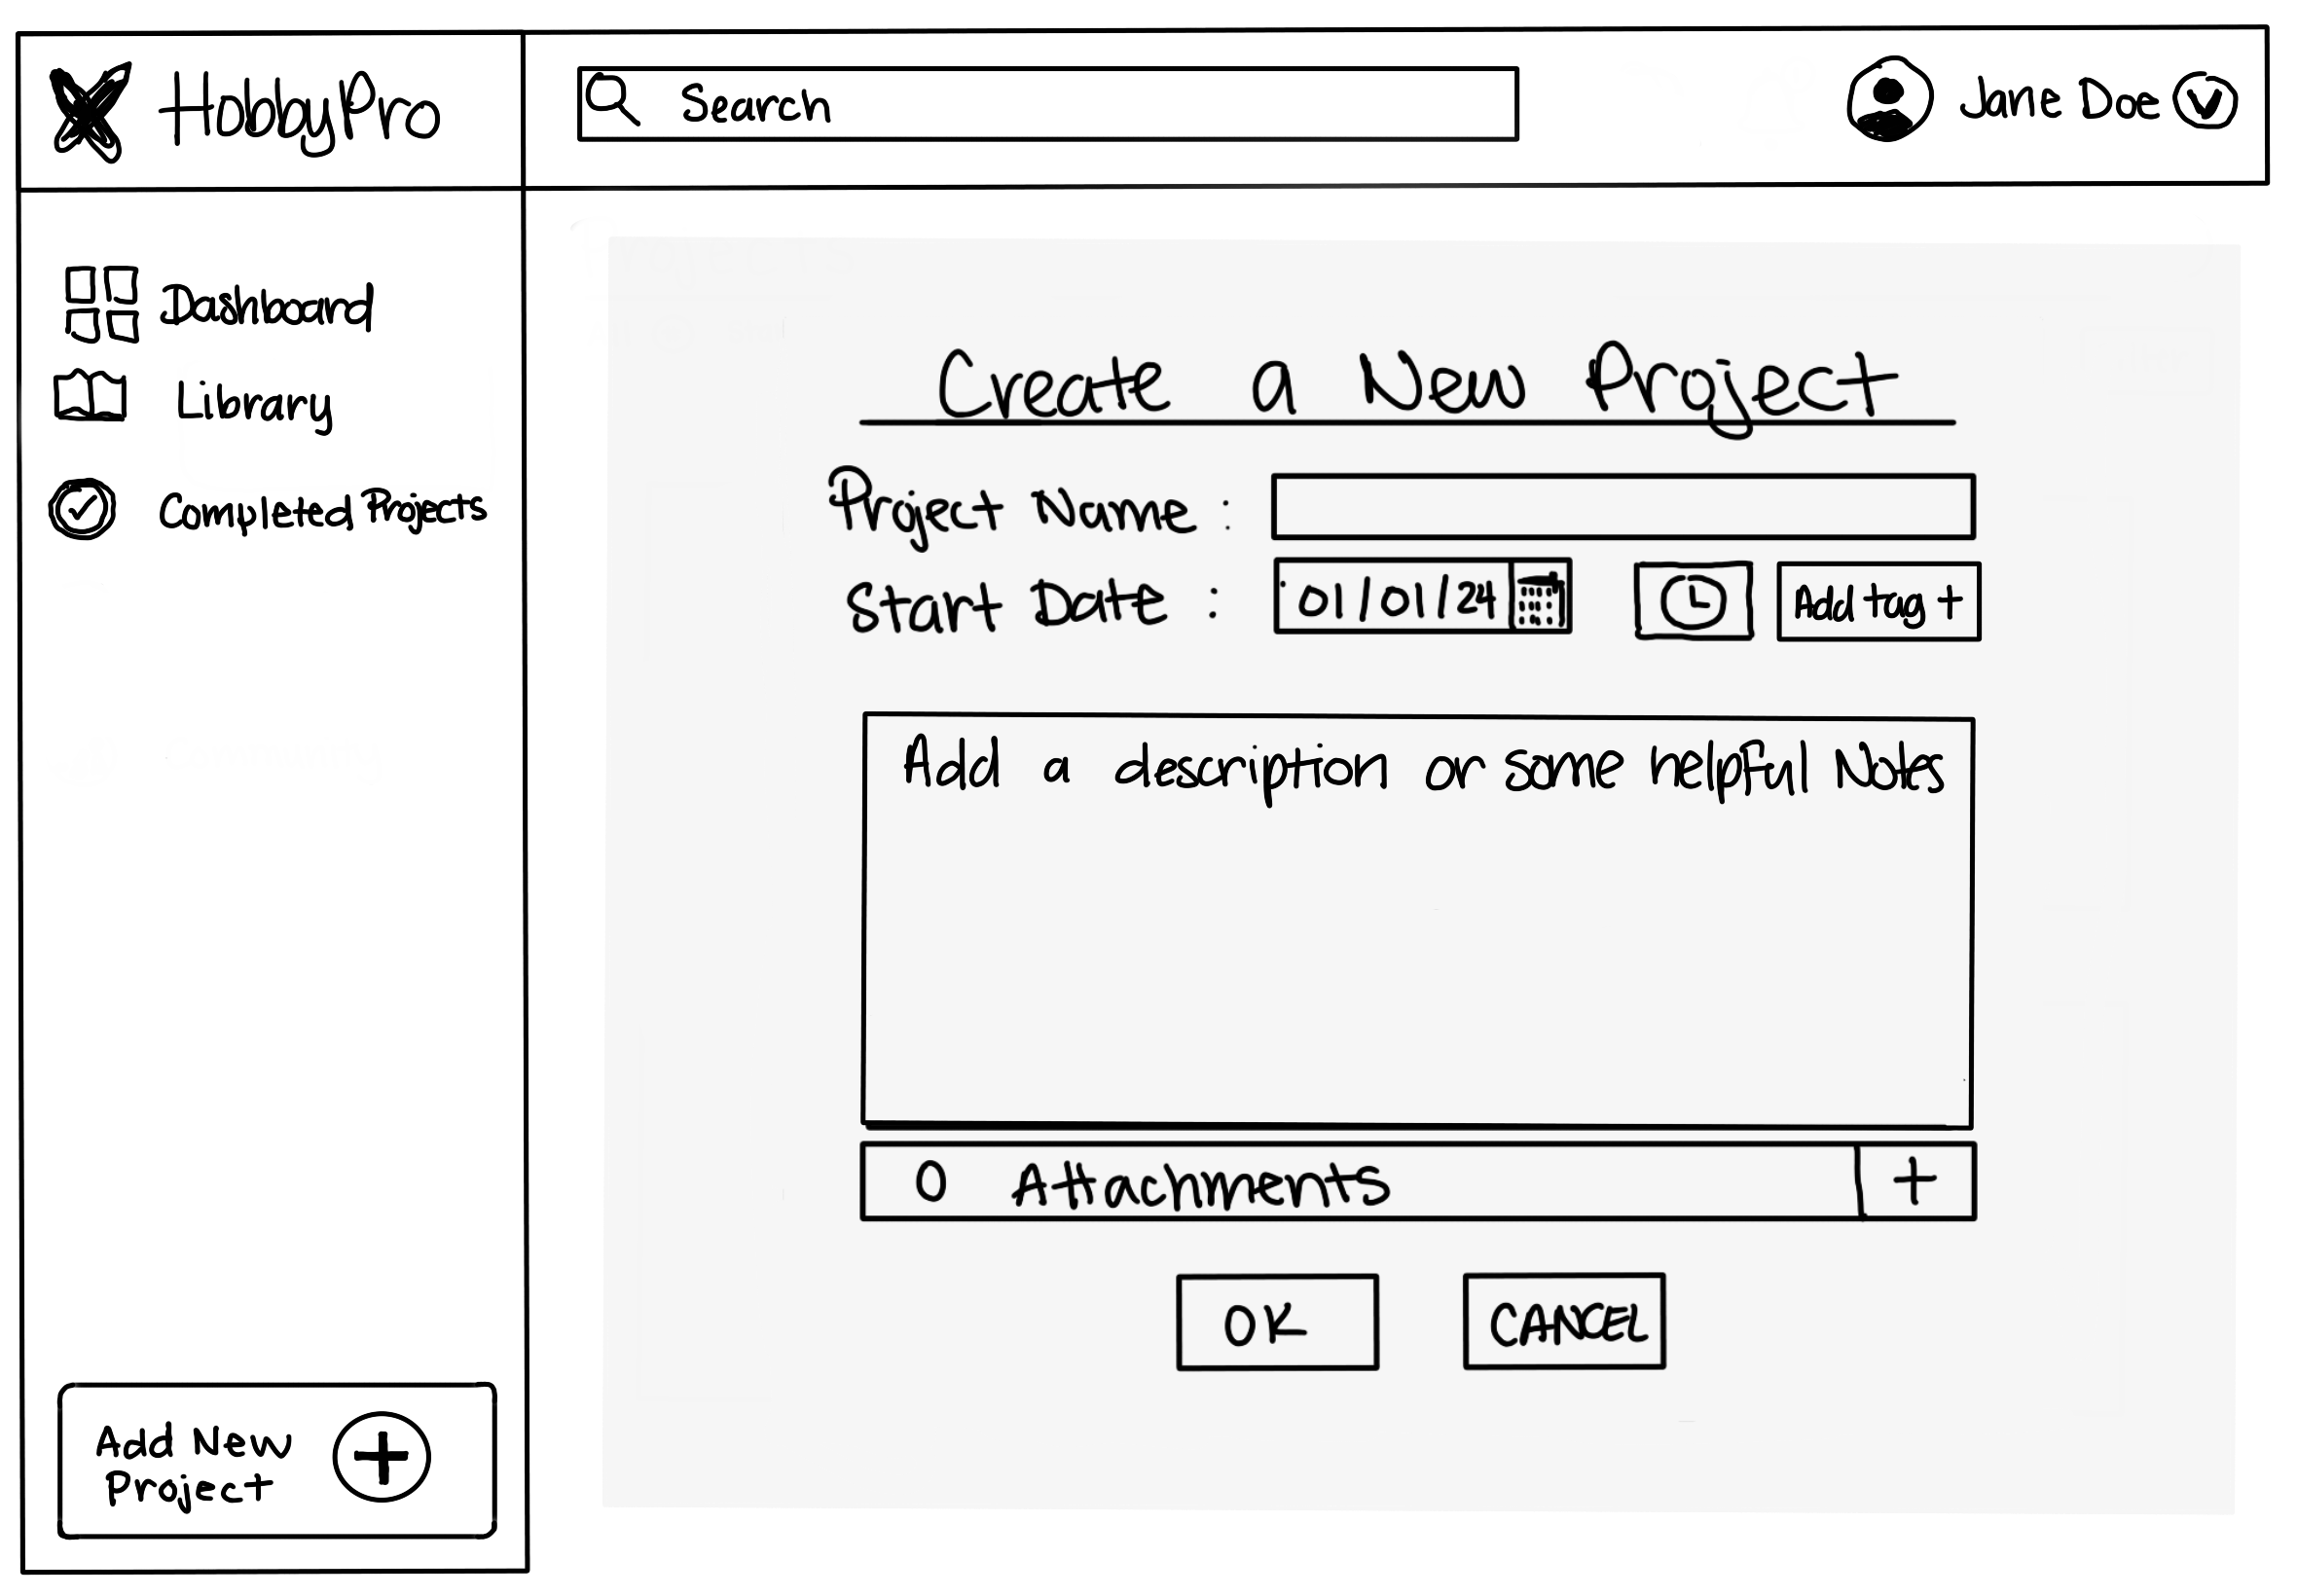 HobbyPro
Search
Jane Doe
Dashboard
Library
Completed Projects
Create a New Project
Project Name :
Start Date : 01/01/24 Add tag +
Add a description or some helpful Notes
0 Attachments +
OK CANCEL
Add New
Project